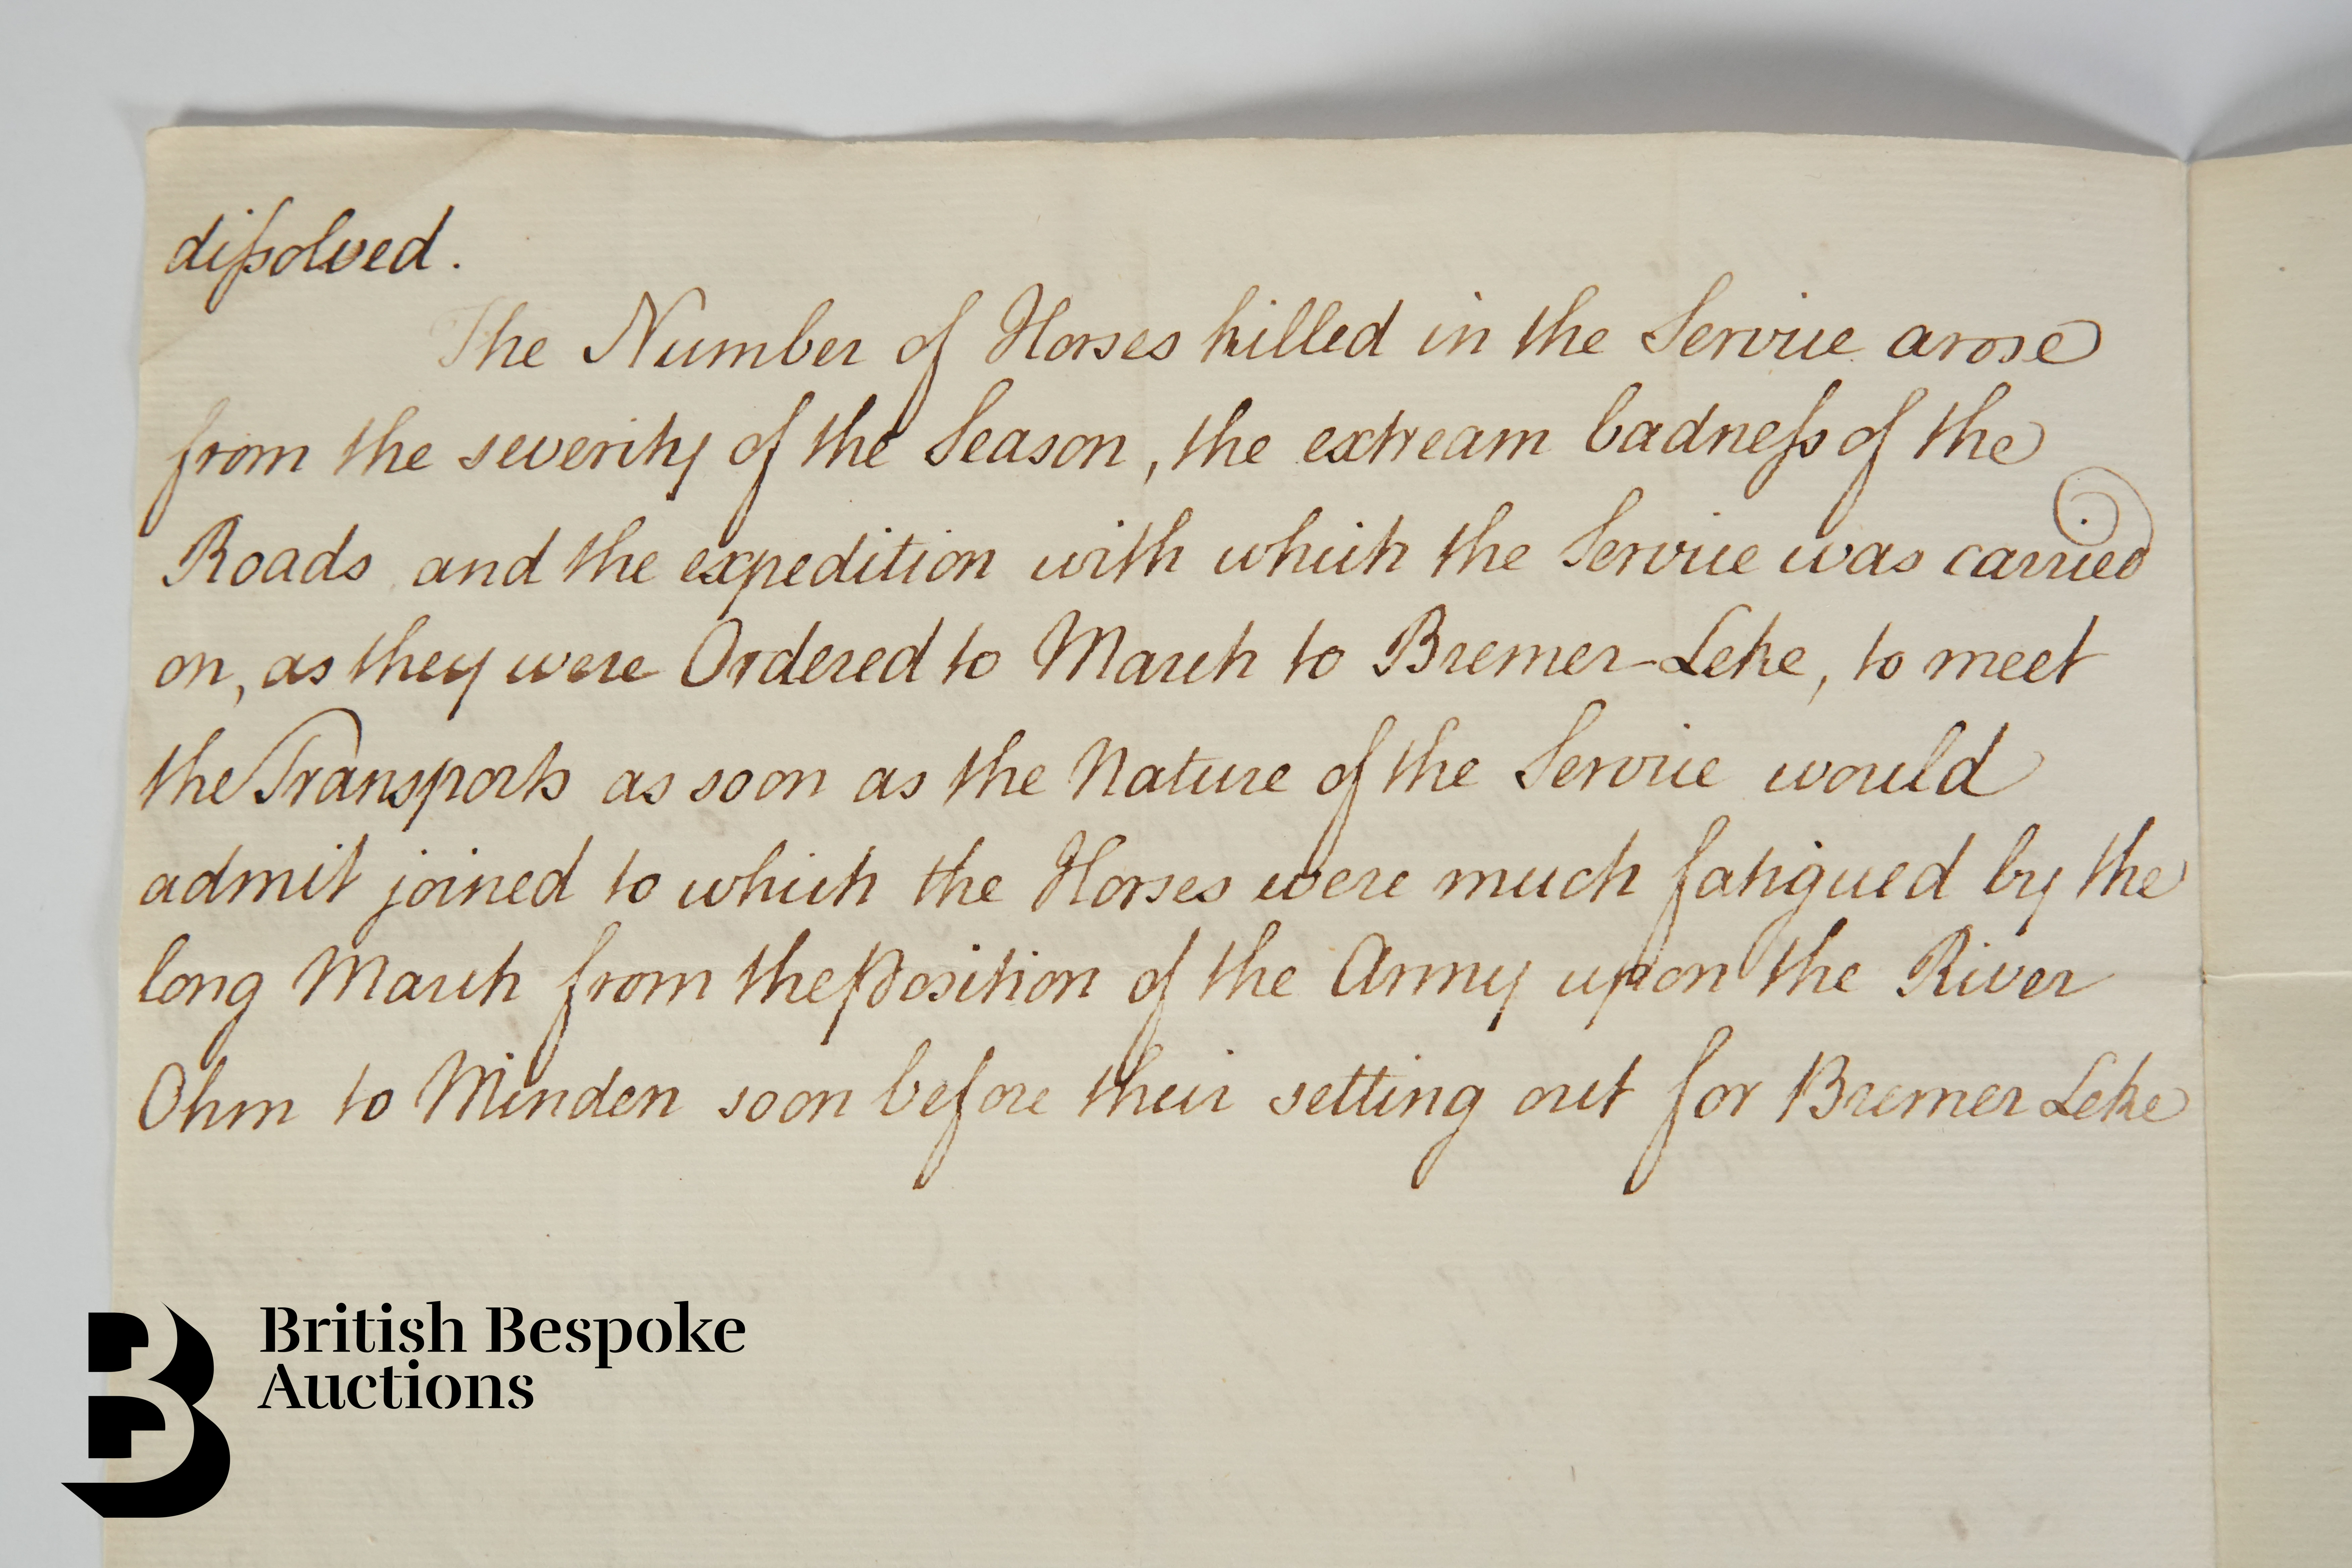 dißolved.
The Number of Horses killed in the Service arose
from the severity of the Season, the extream badneß of the
Roads and the expedition with which the Service was carried
on, as they were Ordered to March to Bremer-Leke, to meet
the Transports as soon as the Nature of the Service would
admit joined to which the Horses were much fatigued by the
long March from the Position of the Army upon the River
Ohm to Minden soon before their setting out for Bremer Leke
British Bespoke
Auctions